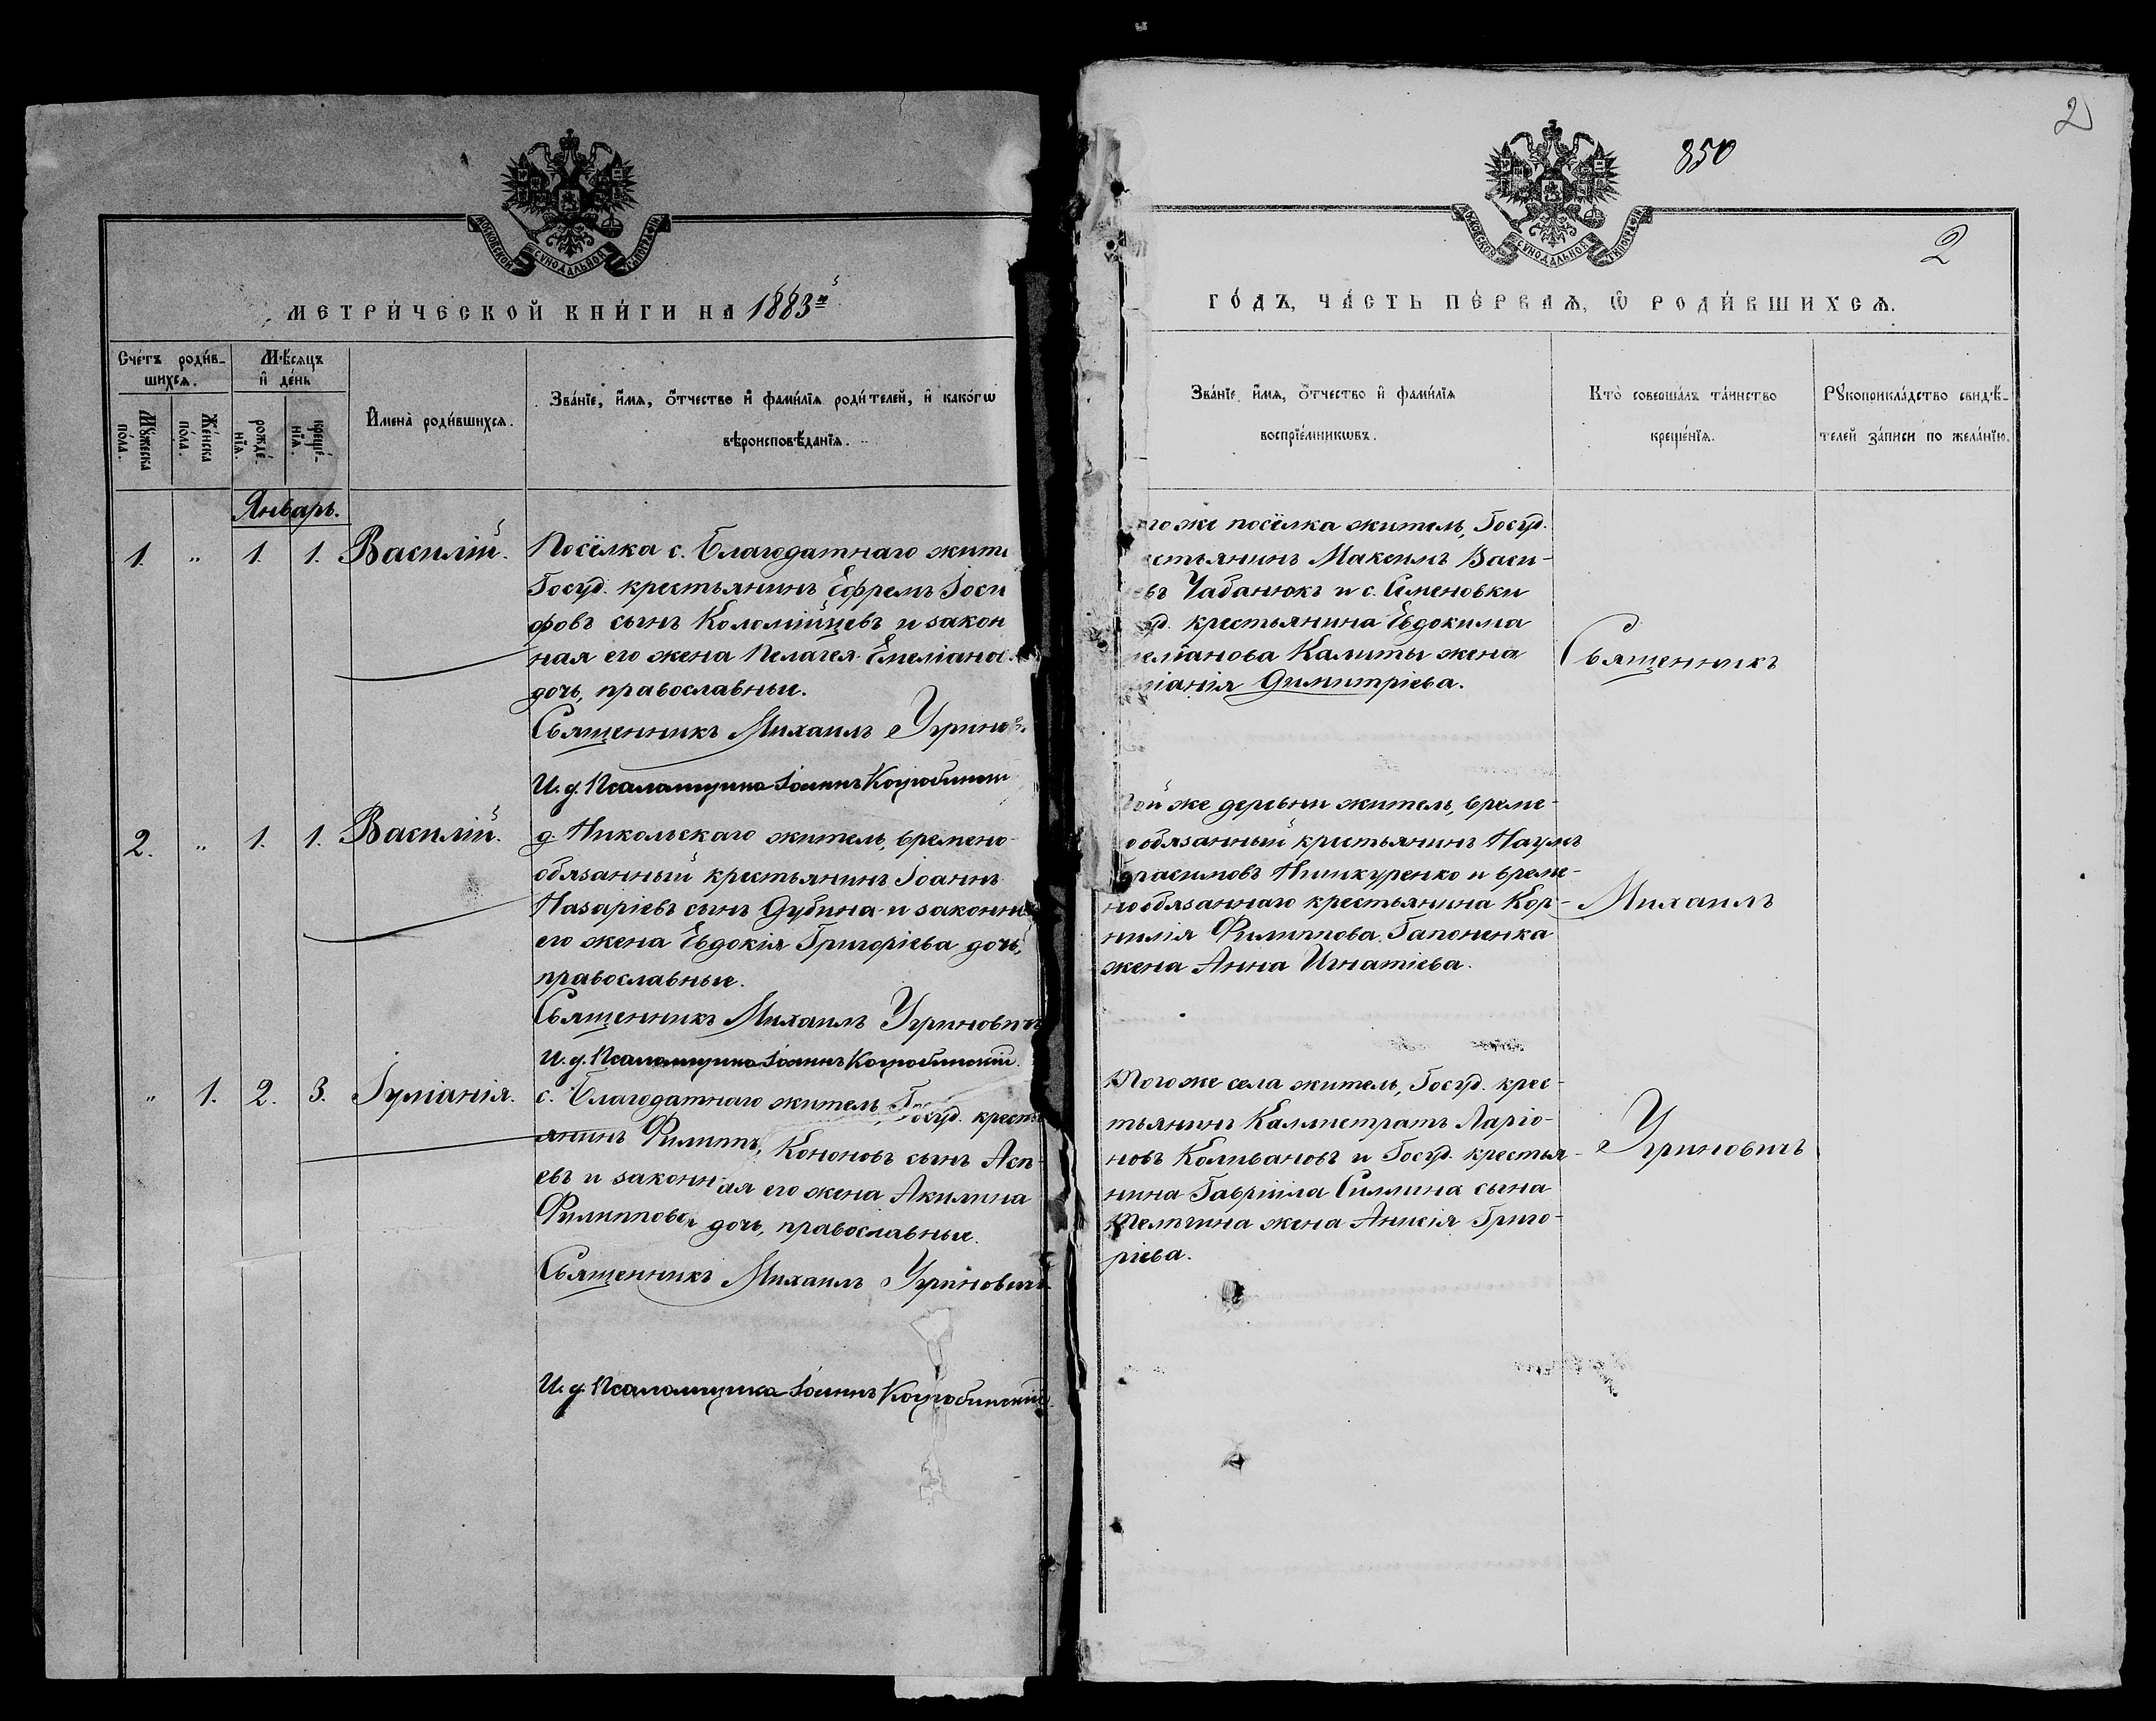 2
850
МОСКОВСКОЙ СѴНОДАЛЬНОЙ ТИПОГРАФІИ
МОСКОВСКОЙ СѴНОДАЛЬНОЙ ТИПОГРАФІИ
2
МЕТРИ́ЧЕСКОЙ КНИ́ГИ НА 1883й
ГО́ДЪ, ЧА́СТЬ ПЕ́РВАѦ, Ѿ РОДИ́ВШИХСѦ.
Сче́тъ роди́в-
шихсѧ.
Мѣ́сяцъ
и҆ де́нь
Мꙋ́жеска
по́ла.
Же́нска
по́ла.
рожде́-
нїѧ.
креще́-
нїѧ.
И҆мена̀ роди́вшихсѧ.
Зва́нїе, и҆́мѧ, ѻ҆́тчество и҆ фами́лїѧ роди́телей, и҆ како́гѡ
вѣроисповѣ́данїѧ.
Зва́нїе, и҆́мѧ, ѻ҆́тчество и҆ фами́лїѧ
воспрїе́мникѡвъ.
Кто̀ соверша́лъ та́инство
креще́нїѧ.
Рꙋкоприкла́дство свидѣ́-
телей за́писи по жела́нїю.
Январь.
1. " 1. 1. Василій.
Посёлка с. Благодатнаго жите
Госуд. крестьянинъ Ефремъ Іоси
фовъ сынъ Коломійцевъ и закон
ная его жена Пелагея Емеліанов.
дочь, православные.
Священникъ Михаилъ Угринов
И. д. Псаломщика Іоаннъ Коцюбинскій
гоже посёлка житель, Госуд.
естьянинъ Максимъ Васи-
евъ Чабанюкъ и с. Семеновки
уд. крестьянина Евдокима
меліанова Калиты жена
ліанія Димитріева.
Священникъ
2. " 1. 1. Василій.
д. Никольскаго житель, времено-
обязанный крестьянинъ Іоаннъ
Назаріевъ сынъ Дубина и законн
его жена Евдокія Григоріева дочь,
православные.
Священникъ Михаилъ Угриновичъ
И. д. Псаломщика Іоаннъ Коцюбинскій.
Той же деревни житель, време-
ообязанный крестьянинъ Наумъ
расимовъ Нишкуренко и време-
нообязаннаго крестьянина Кор-
нилія Филиппова Гапоненка
жена Анна Игнатіева.
Михаилъ
" 1. 2. 3. Іуліанія.
с. Благодатнаго житель, Госуд. кресть
янинъ Филиппъ, Кононовъ сынъ Асѣ
евъ и законная его жена Акилина
Филиппова дочь, православные.
Священникъ Михаилъ Угриновичъ
И. д. Псаломщика Іоаннъ Коцюбинскій.
Тогоже села житель, Госуд. крес-
тьянинъ Каллистратъ Ларіо-
новъ Коливановъ и Госуд. крестья-
нина Гавріила Силина сына
Телпгина жена Анисія Григо-
ріева.
Угриновичъ